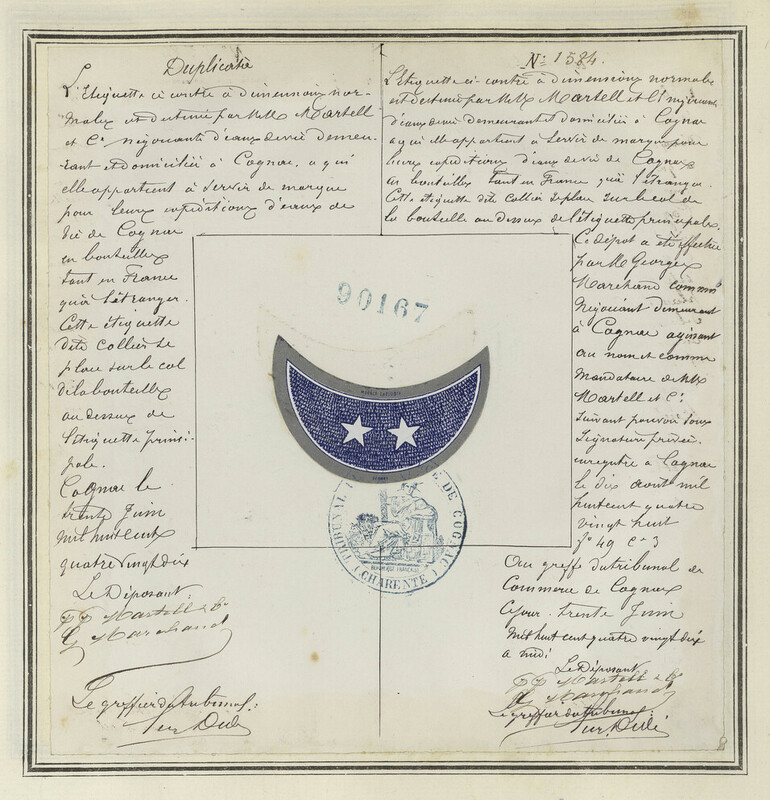 Duplicata
L'Etiquette ci contre à dimensions nor-
males est destinée par MM Martell
et Cie négociants d'eaux de vie demeu-
rant et domiciliés à Cognac, a qui
elle appartient à servir de marque
pour leurs expéditions d'eaux de
vie de Cognac
en bouteilles
tant en France
qu'à l'étranger.
Cette étiquette
dite Collier se
place sur le col
de la bouteille
au dessus de
l'étiquette princi-
pale.
Cognac le
trente Juin
mil huit cent
quatre vingt dix
Le Déposant:
PP Martell & Co
G Marchand
Le greffier du tribunal:
No 1584.
L'Etiquette ci-contre à dimensions normales
est destinée par MM Martell et Cie négociants
d'eaux de vie demeurant et domiciliés à Cognac
a qui elle appartient à servir de marque pour
leurs expéditions d'eaux de vie de Cognac
en bouteilles tant en France qu'à l'étranger.
Cette étiquette dite Collier se place sur le col de
la bouteille au dessus de l'étiquette principale.
Ce dépot a été effectué
par M. Georges
Marchand commis
Négociant demeurant
à Cognac agissant
au nom et comme
mandataire de MM
Martell et Cie
suivant pouvoir sous
signature privée.
enregistré à Cognac
le dix août mil
huit cent quatre
vingt huit
fo 49 Ce 3
Au greffe du tribunal de
Commerce de Cognac
Ce jour trente Juin
mil huit cent quatre vingt dix
a midi
Le Déposant
PP Martell & Co
G Marchand
Le greffier du tribunal:
90167
TRIBUNAL DE COGNAC
RÉPUBLIQUE FRANÇAISE
(CHARENTE)
8